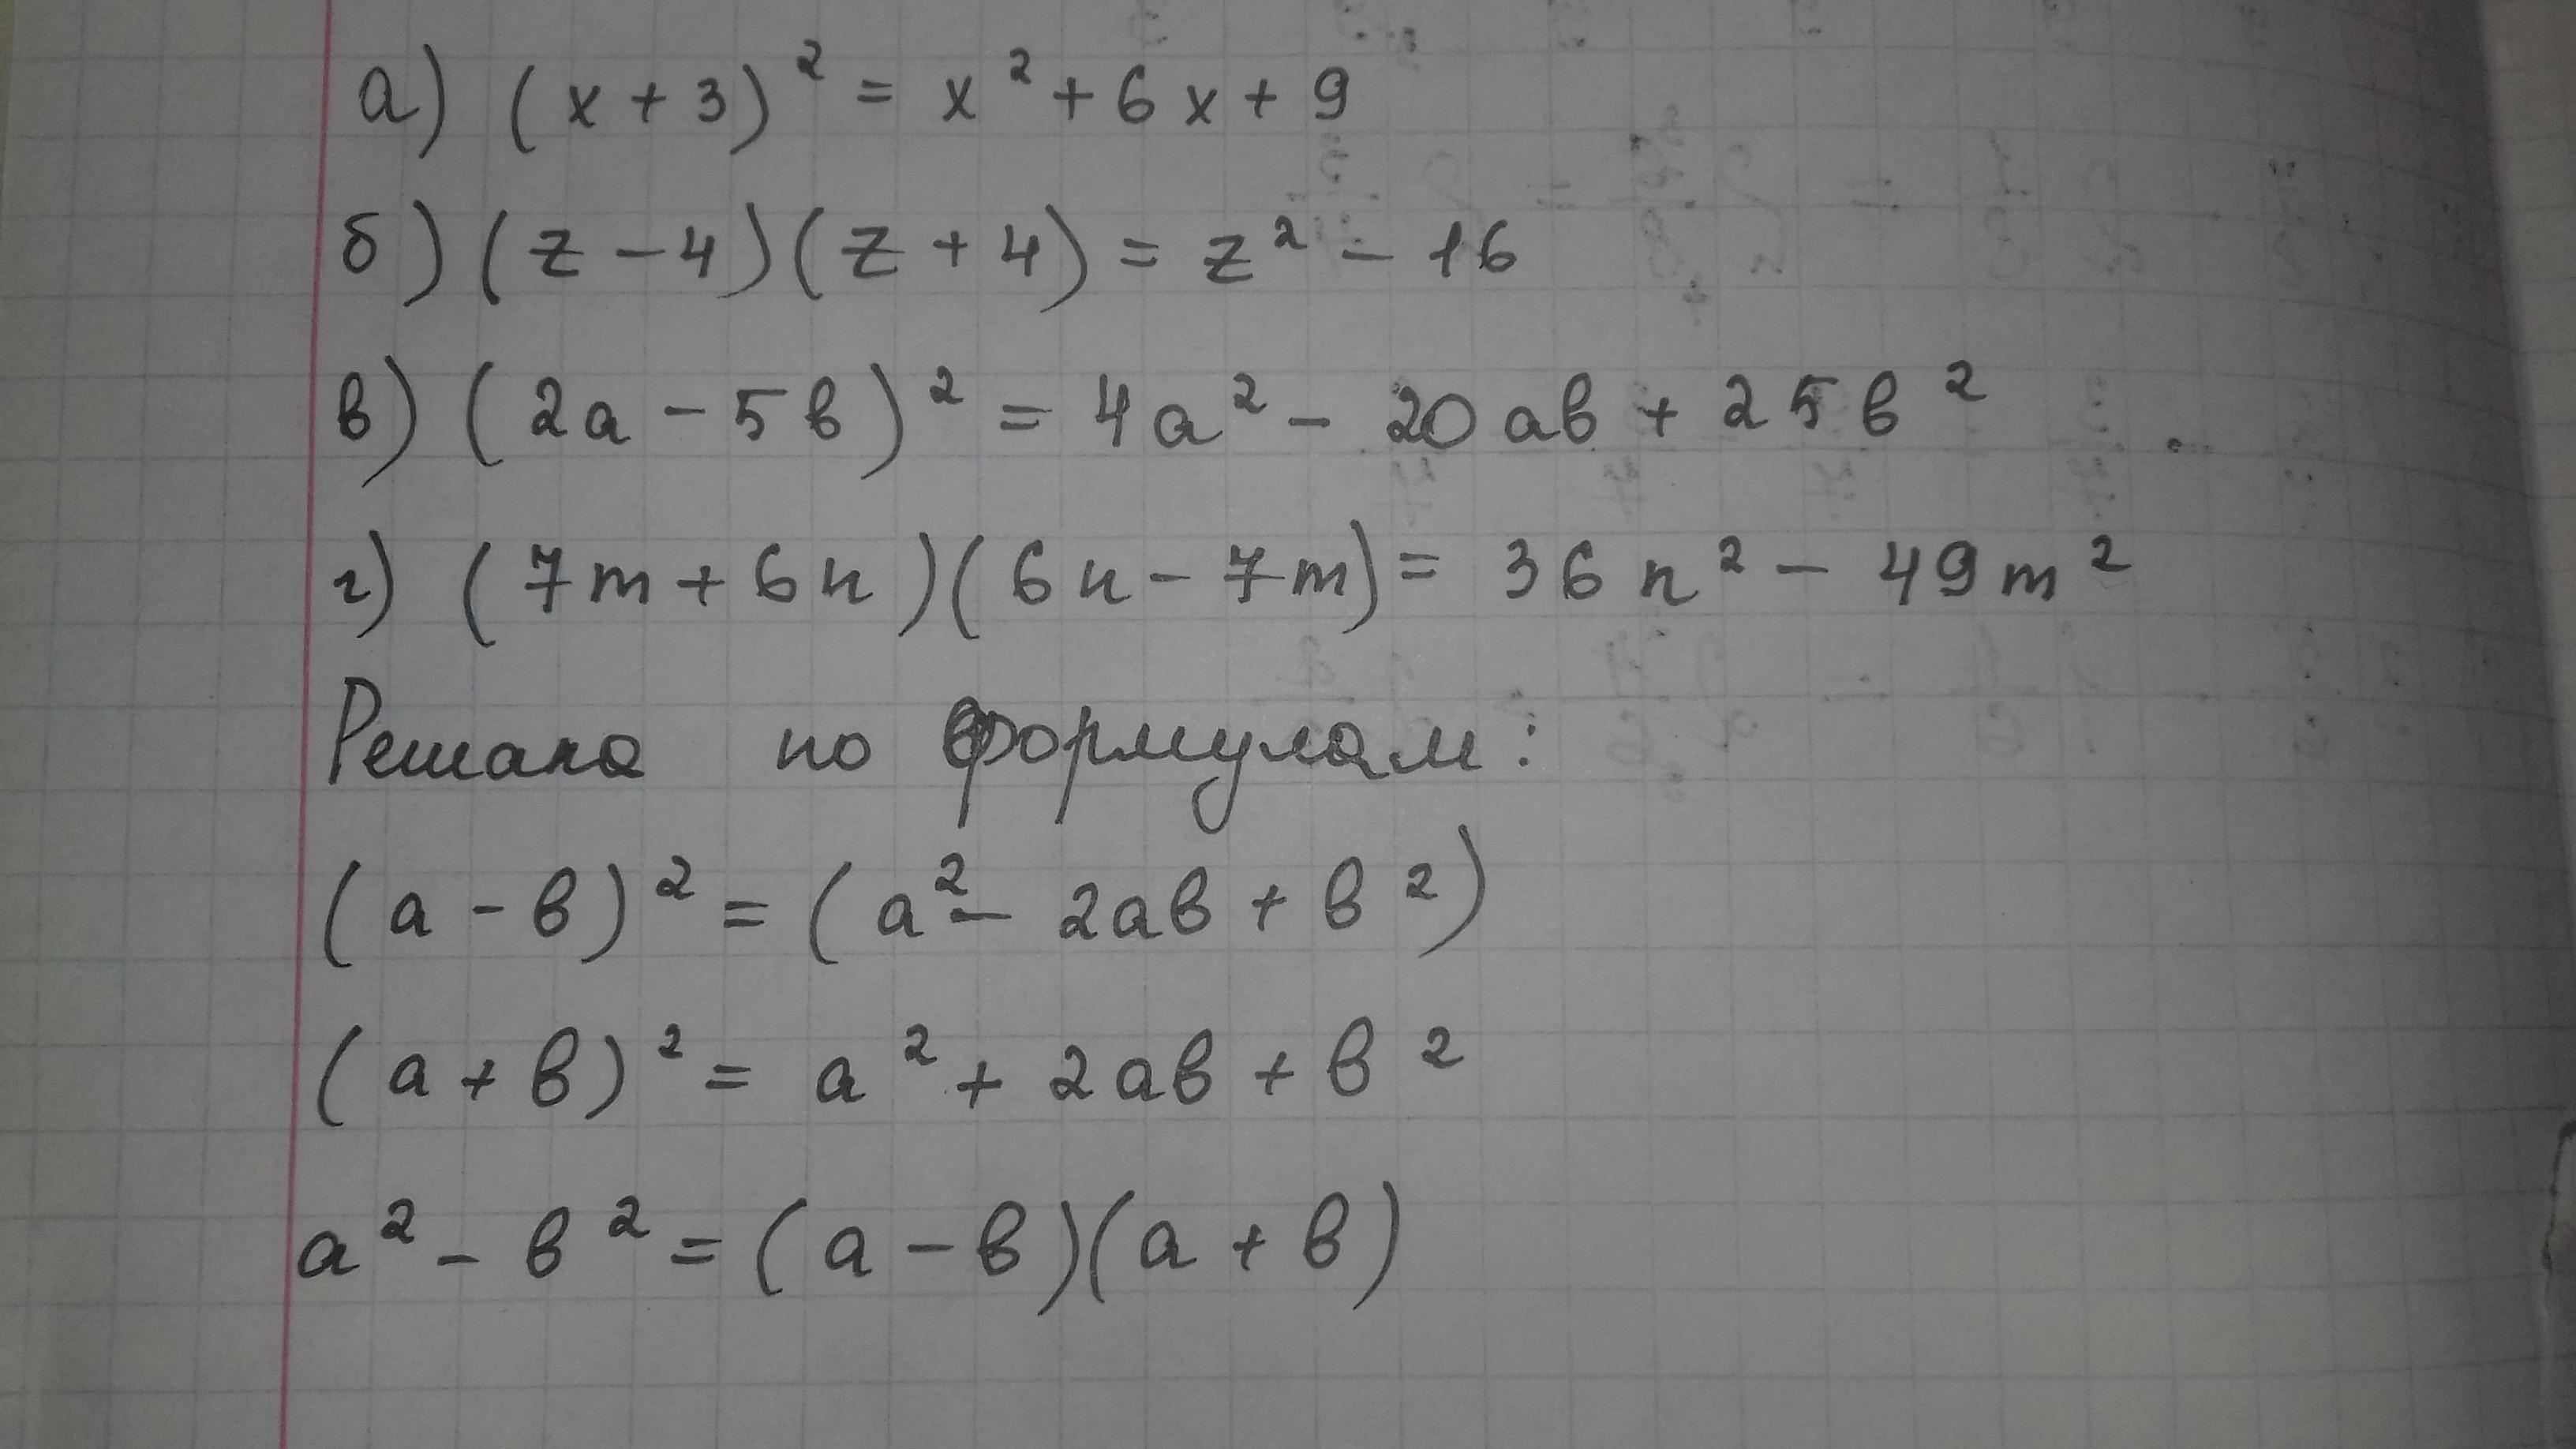 а) (x + 3)² = x² + 6x + 9
б) (z - 4)(z + 4) = z² - 16
в) (2a - 5в)² = 4a² - 20aв + 25в²
г) (7m + 6n)(6n - 7m) = 36n² - 49m²
Решала по формулам:
(a - в)² = (a² - 2aв + в²)
(a + в)² = a² + 2aв + в²
a² - в² = (a - в)(a + в)